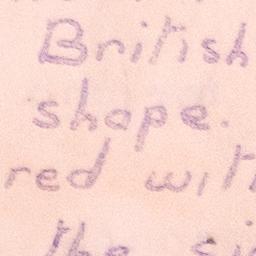 British
shape.
red with
the si